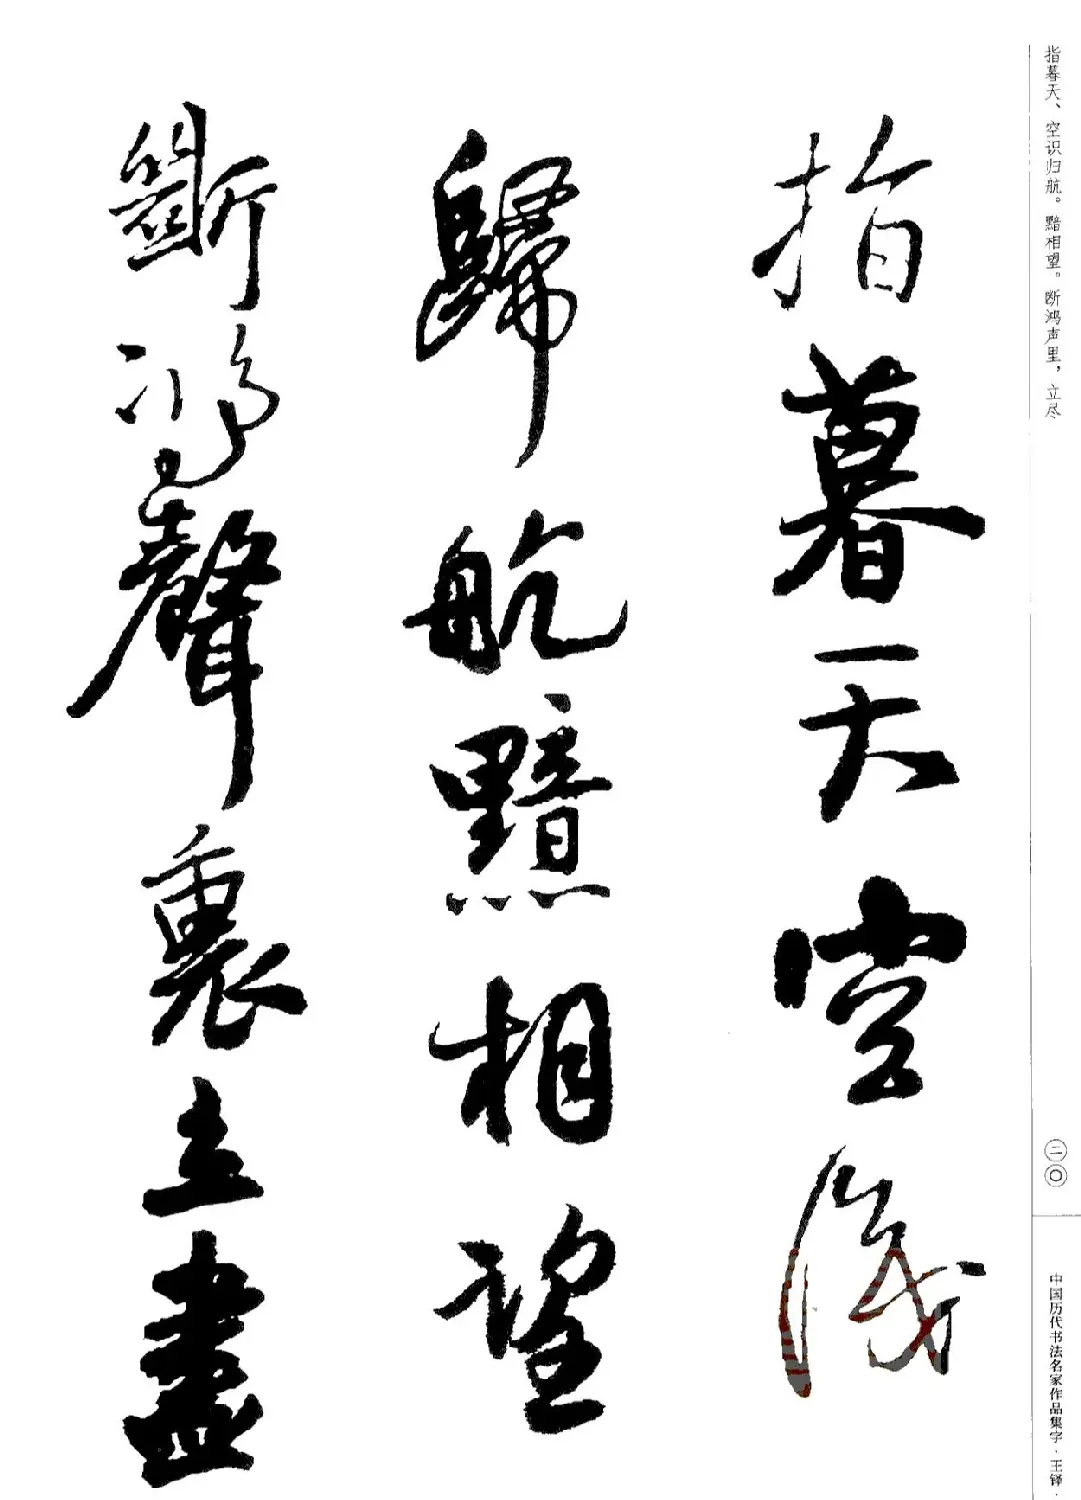 指暮天、空识归航。黯相望。断鸿声里，立尽
指暮天空識
歸航黯相望
斷鴻聲裏立盡
二〇
中国历代书法名家作品集字·王铎·